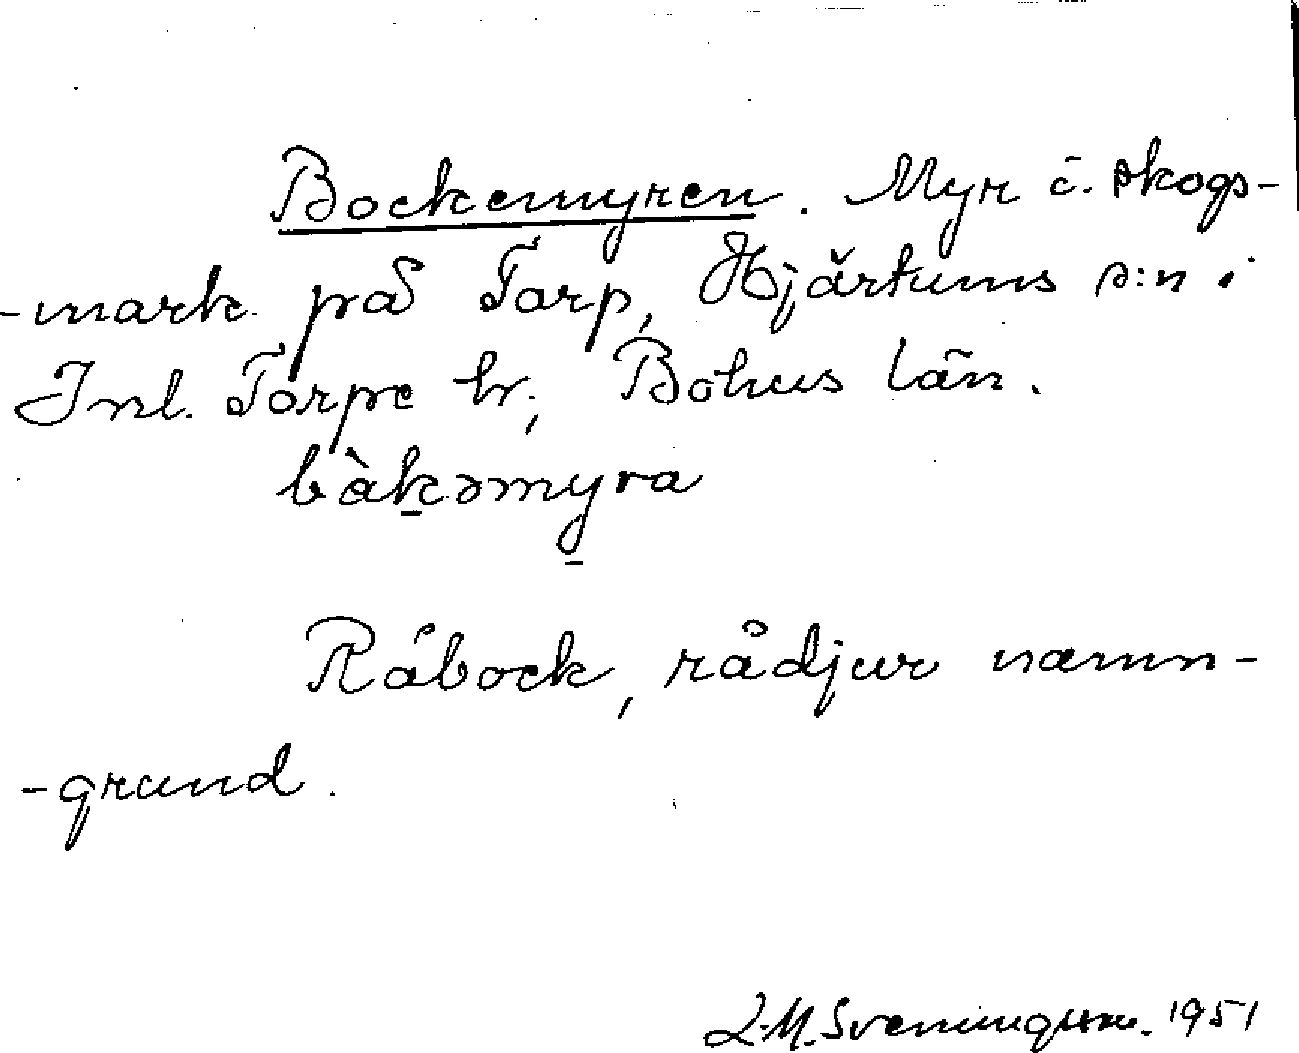 Bockemyren. Myr i. skogs-
-mark på Torp, Hjärtums s:n i
Inl. Torpe hr; Bohus län.
bàkəmyra
Råbock, rådjur namn-
-grund.
L.M. Sveningsson. 1951